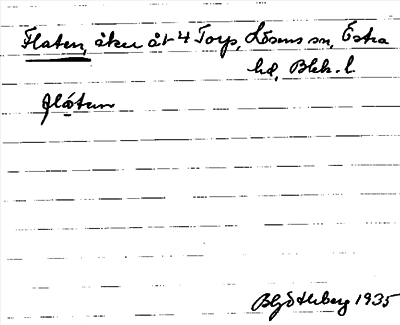 Flaten, åker åt 4 Torp, Lösens sn, Östra
hd, Blek. l.
flåtan
B Götlberg 1935